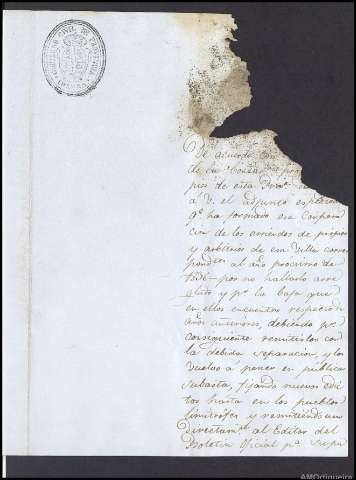 GOBIERNO CIVIL DE PROVINCIA
De acuerdo con
de la Conta
pios de esta Prov.ª
á V. el adjunto espediente
q.e ha formado esa Corpora
cion de los arriendos de propios
y arbitrios de esa Villa corres
pond.tes al año procsimo de
por no hallarlo arre
glado, y p.r la baja que
en ellos encuentro respecto á
años anteriores, debiendo p.r
consiguiente remitirlos con
la debida separacion, y los
vuelva á poner en publica
subasta, fijando nuevos edic
tos hasta en los pueblos
limitrofes y remitiendo uno
directam.te al Editor del
Boletin Oficial p.ª su pu
AMOrtigueira